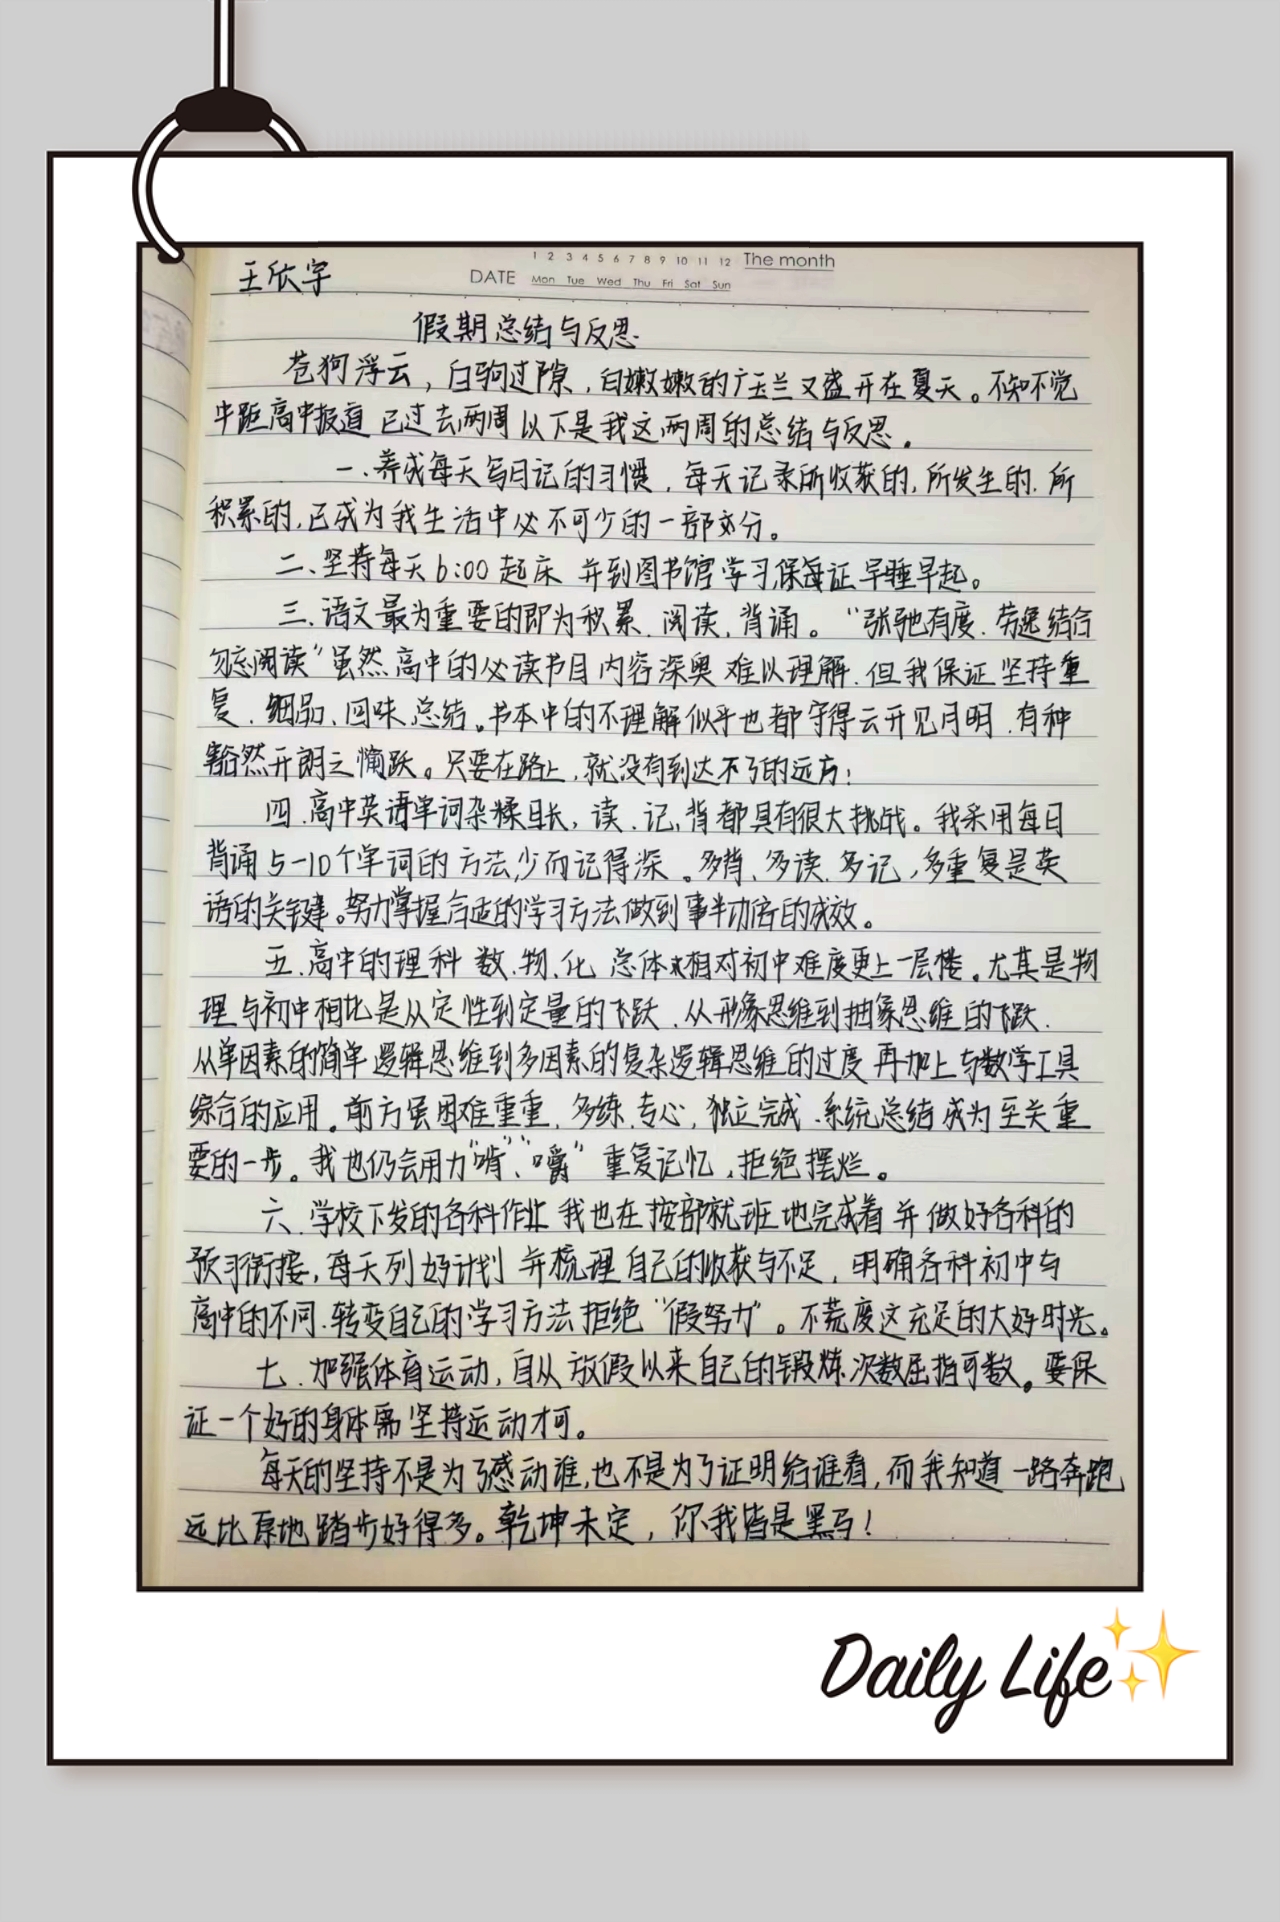 王欣宇
1 2 3 4 5 6 7 8 9 10 11 12 The month
DATE Mon Tue Wed Thu Fri Sat Sun
假期总结与反思
苍狗浮云，白驹过隙，白嫩嫩的广玉兰又盛开在夏天。不知不觉
中距高中报道已过去两周以下是我这两周的总结与反思。
一、养成每天写日记的习惯，每天记录所收获的，所发生的，所
积累的，已成为我生活中必不可少的一部分。
二、坚持每天6:00起床 并到图书馆学习,保证早睡早起。
三、语文最为重要的即为积累、阅读、背诵。“张弛有度、劳逸结合
勿忘阅读”虽然高中的必读书目内容深奥难以理解，但我保证坚持重
复、细品、回味、总结。书本中的不理解似乎也都守得云开见月明，有种
豁然开朗之 跃。只要在路上，就没有到达不了的远方！
四、高中英语单词杂糅且长，读、记、背都具有很大挑战。我采用每日
背诵5-10个单词的方法,少而记得深。多背、多读、多记，多重复是英
语的关键。努力掌握合适的学习方法做到事半功倍的成效。
五、高中的理科 数、物、化 总体相对初中难度更上一层楼。尤其是物
理与初中相比是从定性到定量的飞跃、从形象思维到抽象思维的飞跃、
从单因素的简单逻辑思维到多因素的复杂逻辑思维的过度 再加上与数学工具
综合的应用。前方虽困难重重，多练、专心，独立完成、系统总结成为至关重
要的一步。我也仍会用力“啃”、“嚼”重复记忆，拒绝摆烂。
六、学校下发的各科作业 我也在按部就班地完成着 并做好各科的
预习衔接，每天列好计划 并梳理自己的收获与不足，明确各科初中与
高中的不同、转变自己的学习方法拒绝“假努力”。不荒度这充足的大好时光。
七、加强体育运动，自从放假以来自己的锻炼次数屈指可数。要保
证一个好的身体需坚持运动才可。
每天的坚持不是为了感动谁,也不是为了证明给谁看，而我知道一路奔跑
远比原地踏步好得多。乾坤未定，你我皆是黑马！
Daily Life